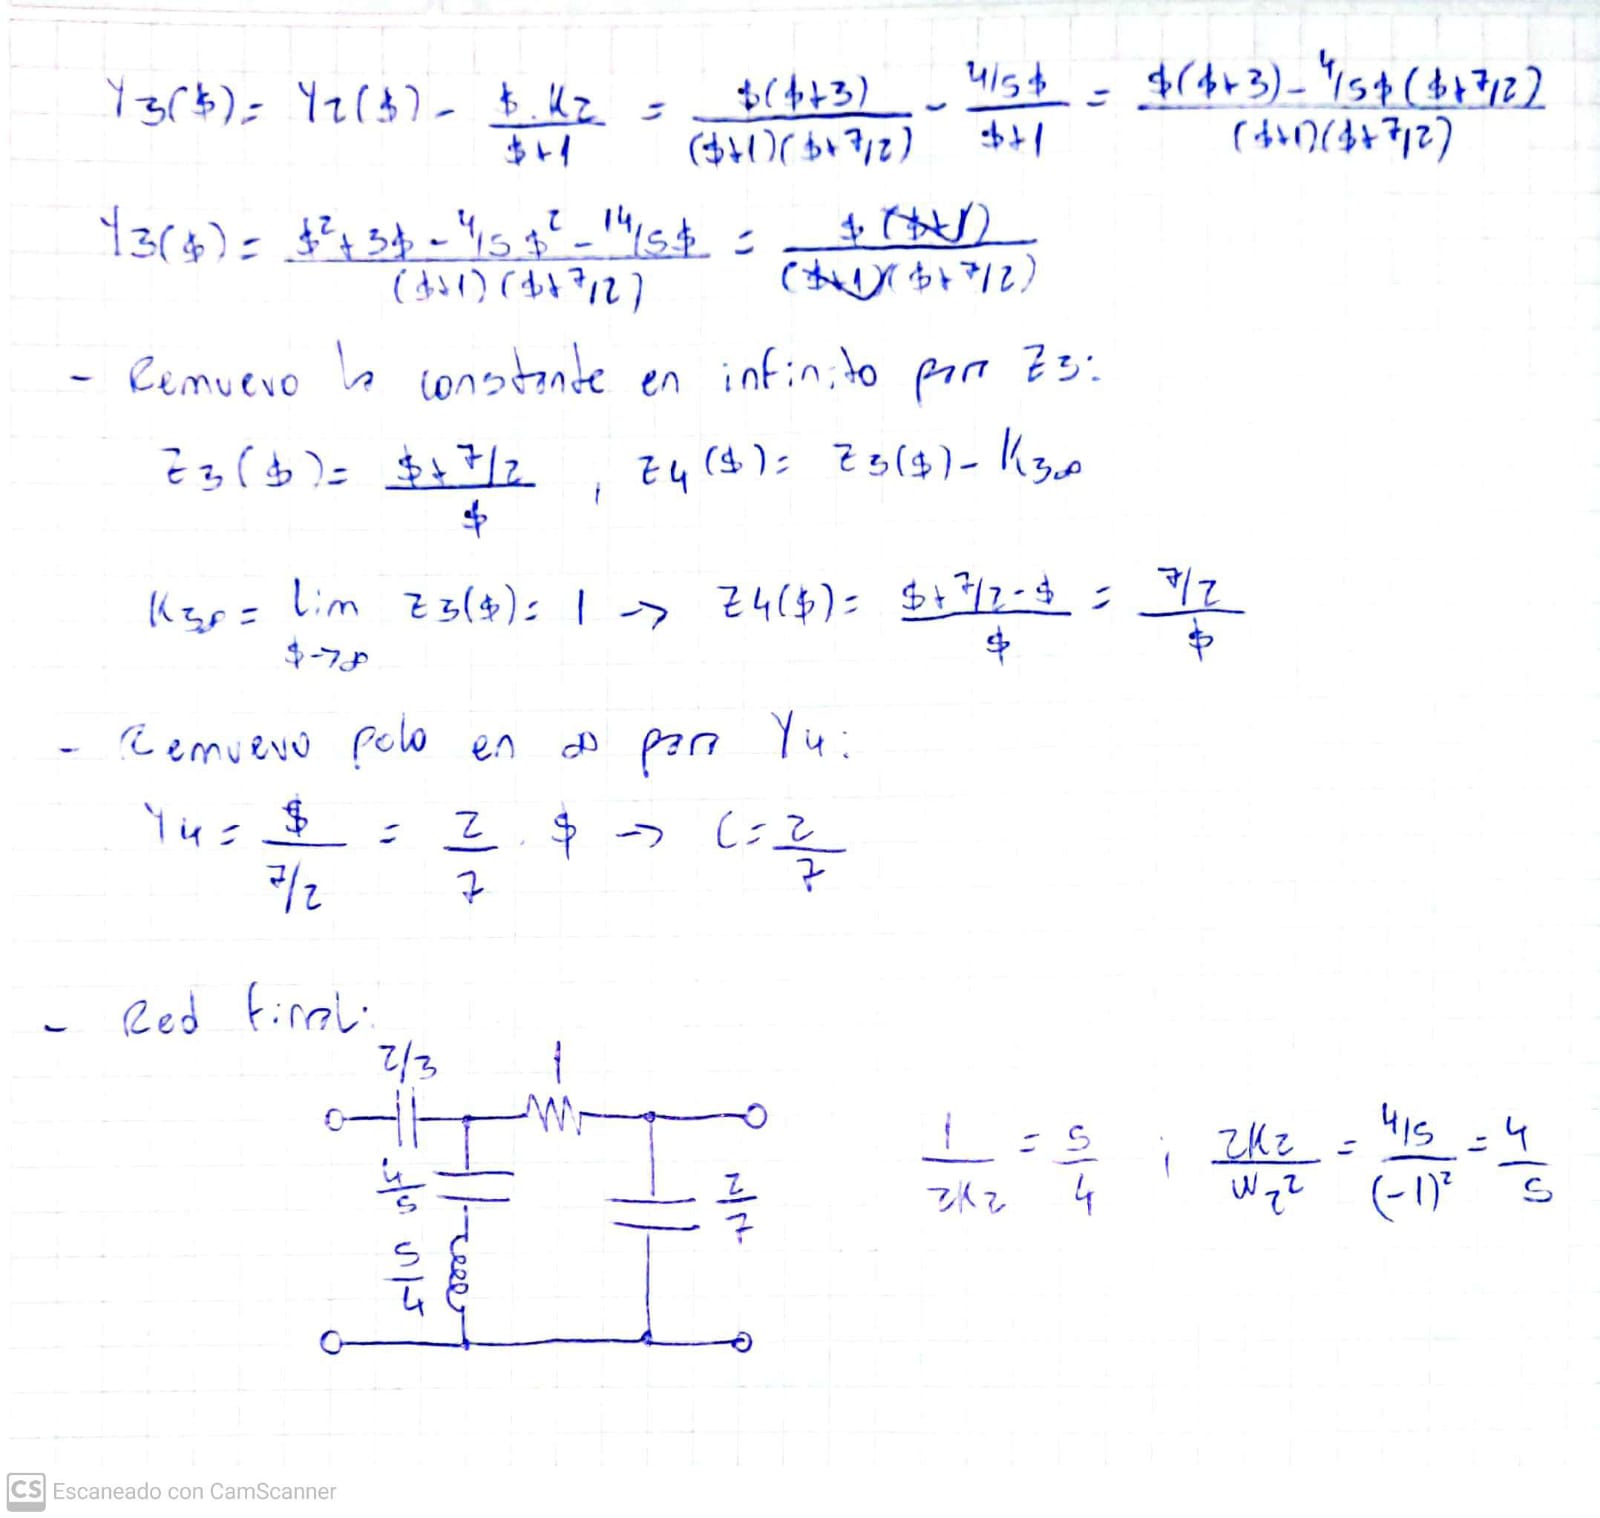 Y3($) = Y2($) - $.K2/($+1) = $($+3)/(($+1)($+7/2)) - 4/5$/($+1) = ($($+3) - 4/5$($+7/2))/(($+1)($+7/2))
Y3($) = ($² + 3$ - 4/5$² - 14/5$)/(($+1)($+7/2)) = $($+1)/(($+1)($+7/2))
- Remuevo la constante en infinito para Z3:
Z3($) = ($+7/2)/$ , Z4($) = Z3($) - K3∞
K3∞ = lim $->∞ Z3($) = 1 -> Z4($) = ($+7/2-$)/$ = (7/2)/$
- Remuevo polo en ∞ para Y4:
Y4 = $/(7/2) = 2/7 . $ -> C = 2/7
- Red final:
2/3 1
4/5 2/7
5/4
1/2K2 = 5/4 ; 2K2/W2² = 4/5/(-1)² = 4/5
CS Escaneado con CamScanner